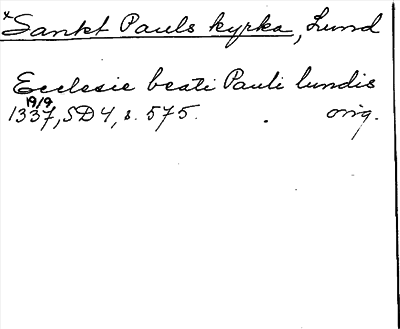 *Sankt Pauls kyrka, Lund
Ecclesie beati Pauli lundis
19/9
1337, SD 4, s. 575. orig.